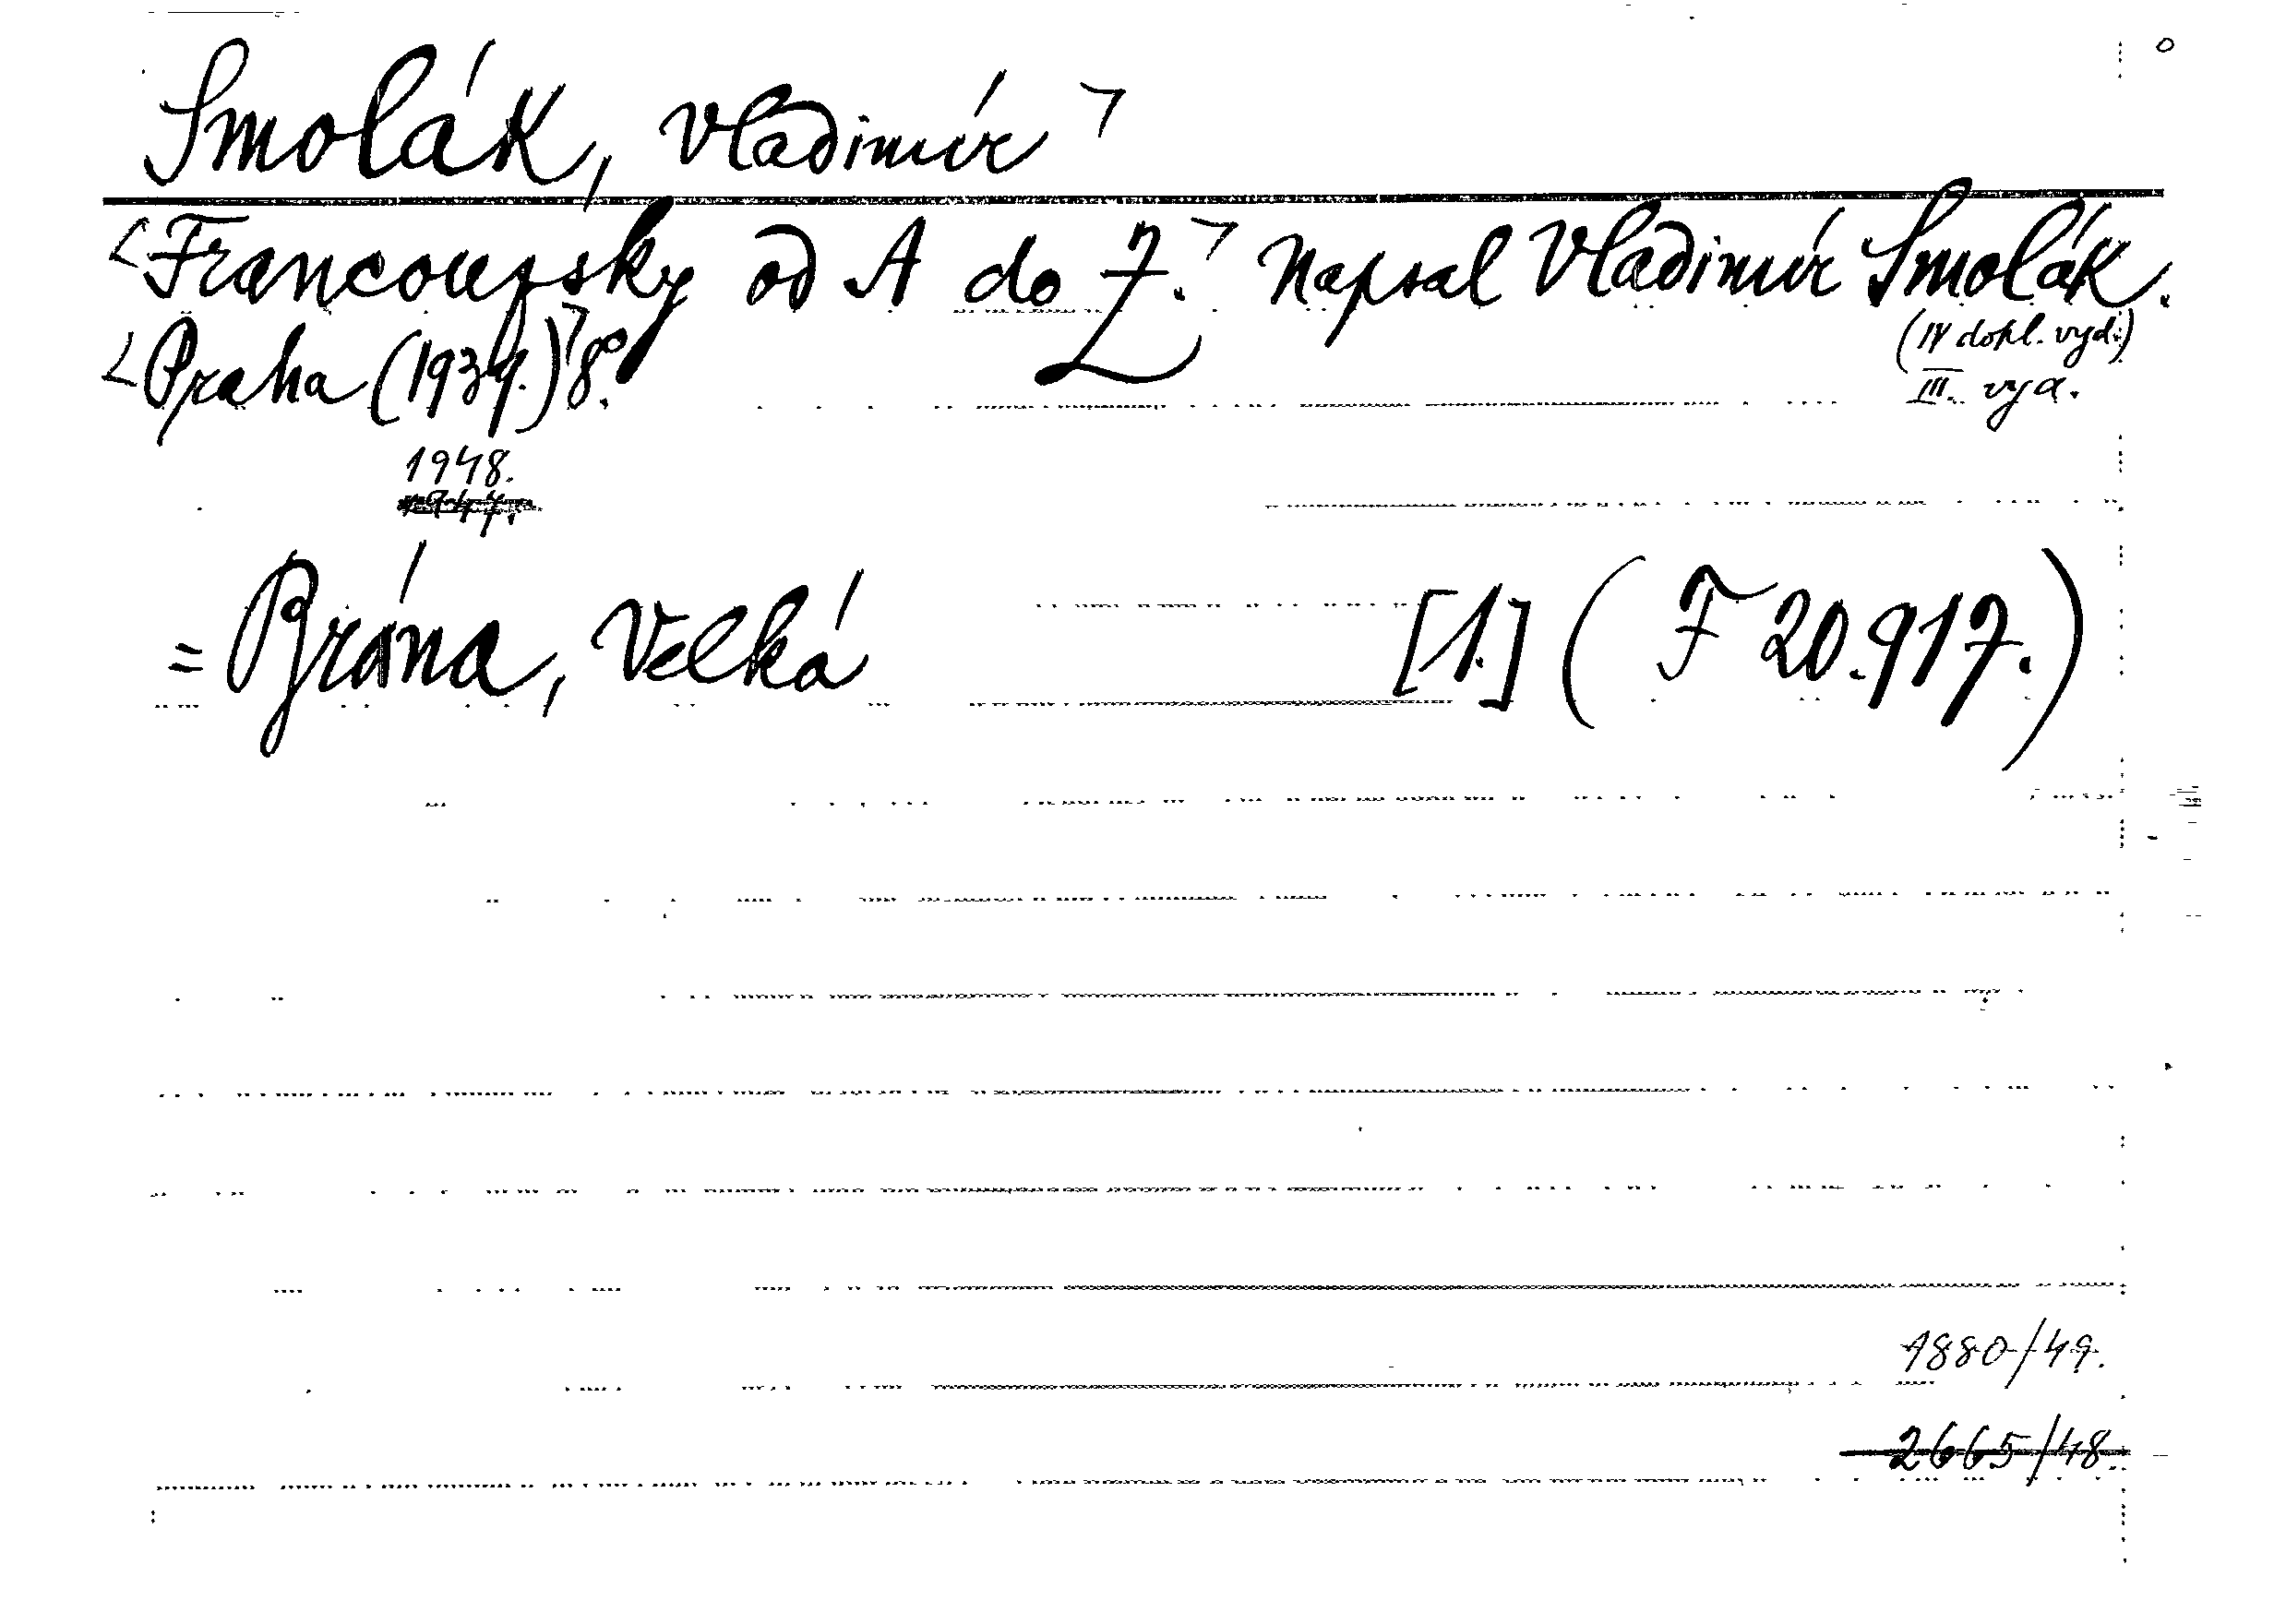 Smolák, Vladimír ⌝
<Francouzsky od A do Z.⌝ Napsal Vladimír Smolák.
(IV dopl. vyd.)
<Praha (1939.)⌝ 8°.
III. vyd.
1948.
1947.
= Brána, Velká [1.] (F 20.917.)
1880/49.
2665/48.